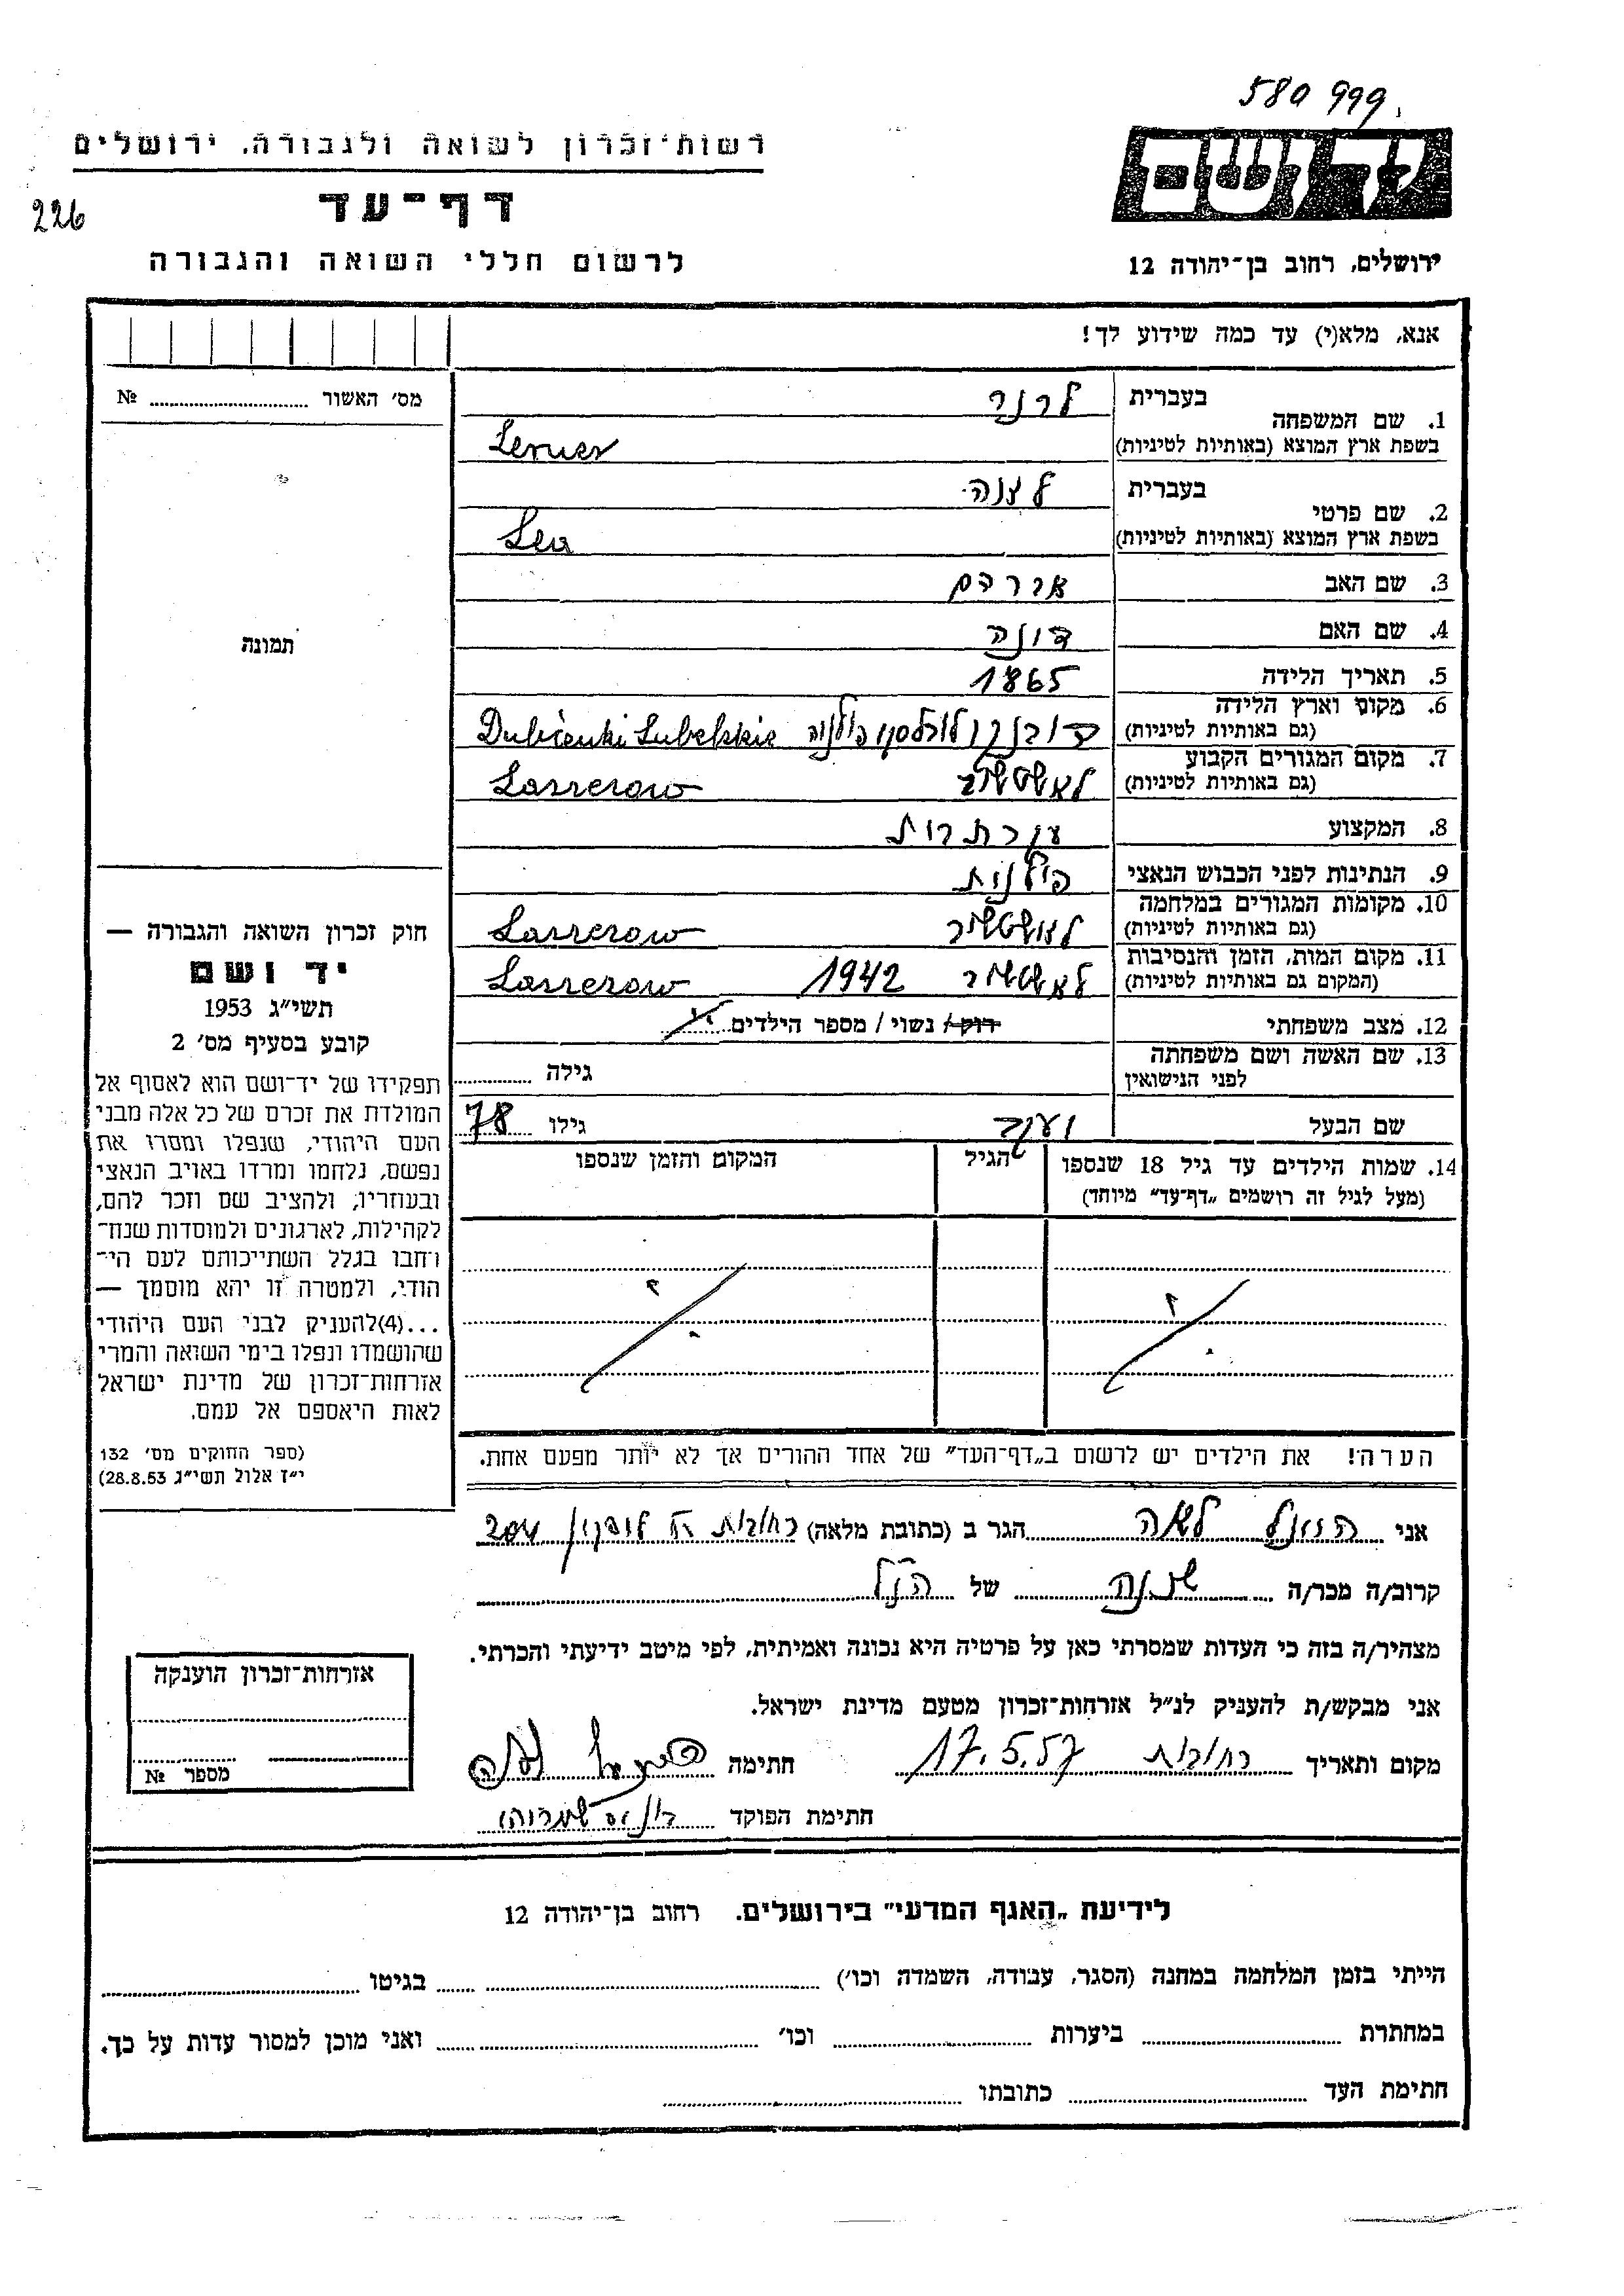 580 999
רשות־זכרון לשואה ולגבורה, ירושלים
ידושם
226
דף־עד
לרשום חללי השואה והגבורה
ירושלים, רחוב בן־יהודה 12
אנא, מלא(י) עד כמה שידוע לך!
מס׳ האשור № 
1. שם המשפחה
בעברית לרנר
בשפת ארץ המוצא (באותיות לטיניות) Lerner
2. שם פרטי
בעברית
בשפת ארץ המוצא (באותיות לטיניות) Lea
3. שם האב אברהם
4. שם האם
5. תאריך הלידה 1865
6. מקום וארץ הלידה
(גם באותיות לטיניות) Dubienki Lubelskie
7. מקום המגורים הקבוע
(גם באותיות לטיניות)
8. המקצוע עקרת בית
9. הנתינות לפני הכבוש הנאצי פולנית
10. מקומות המגורים במלחמה
(גם באותיות לטיניות)
11. מקום המות, הזמן והנסיבות
(המקום גם באותיות לטיניות) 1942
12. מצב משפחתי רוק / נשוי / מספר הילדים
13. שם האשה ושם משפחתה
לפני הנישואין גילה
שם הבעל גילו 78
14. שמות הילדים עד גיל 18 שנספו
(מעל לגיל זה רושמים „דף־עד״ מיוחד)
הגיל
המקום והזמן שנספו
הערה! את הילדים יש לרשום ב„דף־העד״ של אחד ההורים אך לא יותר מפעם אחת.
תמונה
חוק זכרון השואה והגבורה —
יד ושם
תשי״ג 1953
קובע בסעיף מס׳ 2
תפקידו של יד־ושם הוא לאסוף אל
המולדת את זכרם של כל אלה מבני
העם היהודי, שנפלו ומסרו את
נפשם, נלחמו ומרדו באויב הנאצי
ובעוזריו, ולהציב שם וזכר להם,
לקהילות, לארגונים ולמוסדות שנח־
רחבו בגלל השתייכותם לעם הי־
הודי, ולמטרה זו יהא מוסמך —
...(4)להעניק לבני העם היהודי
שהושמדו ונפלו בימי השואה והמרי
אזרחות־זכרון של מדינת ישראל
לאות היאספם אל עמם.
(ספר החוקים מס׳ 132
י״ז אלול תשי״ג 28.8.53)
אני לאה הגר ב (כתובת מלאה) רחובות
קרוב/ה מכר/ה שכנה של הנ״ל
מצהיר/ה בזה כי העדות שמסרתי כאן על פרטיה היא נכונה ואמיתית, לפי מיטב ידיעתי והכרתי.
אני מבקש/ת להעניק לנ״ל אזרחות־זכרון מטעם מדינת ישראל.
מקום ותאריך רחובות 17.5.57 חתימה
חתימת הפוקד
אזרחות־זכרון הוענקה
מספר №
לידיעת „האגף המדעי״ בירושלים. רחוב בן־יהודה 12
הייתי בזמן המלחמה במחנה (הסגר, עבודה, השמדה וכו׳) בגיטו
במחתרת ביערות וכו׳ ואני מוכן למסור עדות על כך.
חתימת העד כתובתו